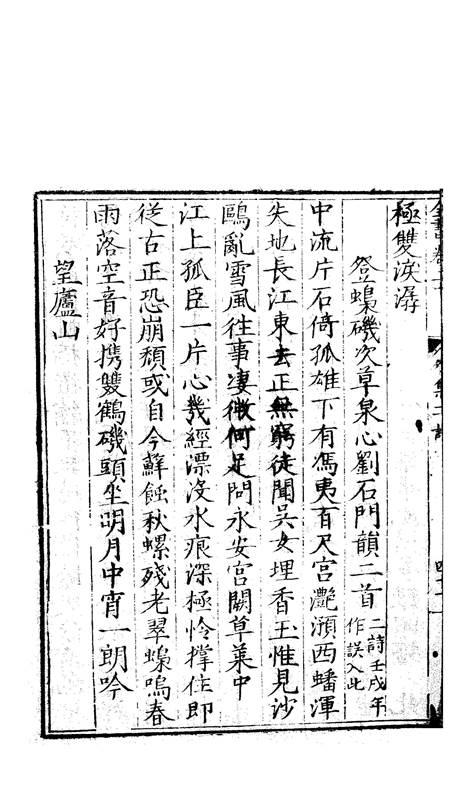 極雙淚潺
登蟂磯次草泉心劉石門韻二首二詩壬戌年作誤入此
中流片石倚孤雄下有馮夷百尺宮灩澦西蟠渾
失地長江東去正無窮徒聞吳女埋香玉惟見沙
鷗亂雪風徃事凄微何足問永安宮闕草萊中
江上孤臣一片心幾經漂没水痕深極怜撑住即
從古正恐崩頹或自今蘇蝕秋螺殘老翠蟂鳴春
雨落空音好携雙鶴磯頭坐明月中宵一朗吟
望廬山